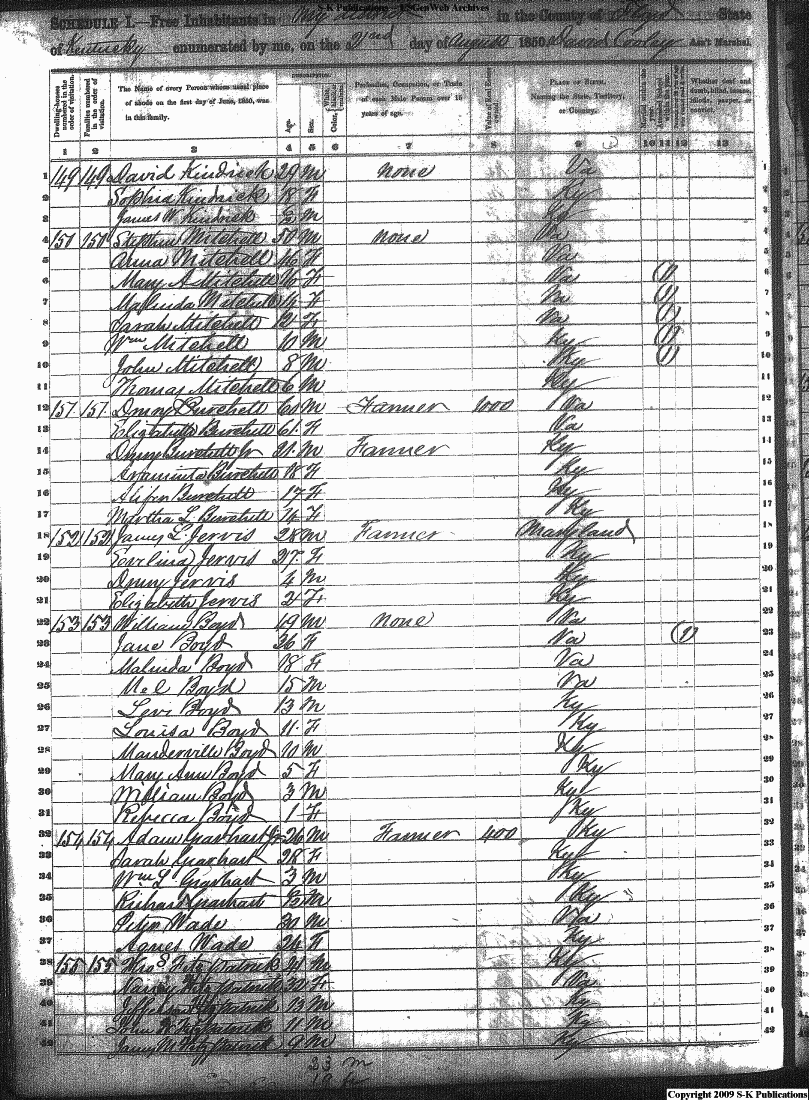 S-K Publications - USGenWeb Archives
SCHEDULE I.—Free Inhabitants in District in the County of Floyd State
of Kentucky enumerated by me, on the 2nd day of August 1850. David Cooley Ass't Marshal
Dwelling-houses numbered in the order of visitation. Families numbered in the order of visitation. The Name of every Person whose usual place of abode on the first day of June, 1850, was in this family. Age. Sex. Color, Profession, Occupation, or Trade of each Male Person over 15 years of age. Value of Real Estate owned. Place of Birth. Naming the State, Territory, or Country. Whether deaf and dumb, blind, insane, idiotic, pauper, or convict.
1 2 3 4 5 6 7 8 9 10 11 12 13
1 149 149 David Kindrick 29 M none Va 1
2 Sophia Kindrick 18 F Ky 2
James W. Kindrick M Ky
4 Stephen Mitchell 50 M none 4
5 Anna Mitchell 46 F Va 5
6 Mary A Mitchell F Va (1) 6
7 Malinda Mitchell 14 F (1) 7
8 Sarah Mitchell 12 F Va (1) 8
9 Wm Mitchell 10 M Ky (1) 9
10 John Mitchell 8 M Ky (1) 10
11 Thomas Mitchell 6 M Ky 11
12 151 151 Drury Burchett 60 M Farmer 1000 Va 12
13 Elizabeth Burchett 61 F Va
14 Drury Burchett Jr 21 M Farmer Ky 14
15 Araminta Burchett 18 F Ky 15
16 Burchett 17 F Ky 16
17 Martha L Burchett 14 F Ky 17
18 152 152 James L. Jervis 28 M Farmer Maryland 18
19 Evelina Jervis F Ky 19
20 Drury Jervis 4 M Ky 20
21 Elizabeth Jervis 2 F Ky 21
22 153 153 William Boyd 49 M none Va 22
Jane Boyd 36 F Va (1) 23
24 Malinda Boyd 18 F Va 24
25 Boyd 15 M Va 25
26 Levi Boyd 13 M Ky 26
27 Louisa Boyd 11 F Ky 27
28 Manderville Boyd 10 M Ky 28
29 Mary Ann Boyd 5 F Ky 29
30 William Boyd 3 M Ky
31 Rebecca Boyd 1 F Ky 31
32 154 154 Adam Gearhart Jr 26 M Farmer 400 Ky
33 Sarah Gearhart 28 F Ky 33
34 Wm L Gearhart 3 M Ky 34
35 Richard Gearhart M Ky 35
36 Peter Wade M Va 36
37 Agnes Wade 24 F Ky 37
38 155 155 Fitzpatrick M Ky 38
39 Nancy Fitzpatrick 32 F Va 39
40 Jefferson Fitzpatrick 13 M Ky 40
41 Fitzpatrick 11 M Ky 41
42 James M Fitzpatrick 9 M Ky 42
23 m
Copyright 2009 S-K Publications